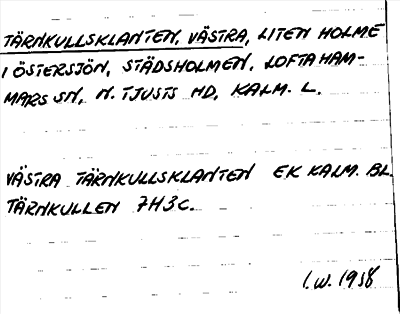 TÄRNKULLSKLANTEN, VÄSTRA, LITEN HOLME
I ÖSTERSJÖN, STÄDSHOLMEN, LOFTAHAM-
MARS SN, N. TJUSTS HD, KALM. L.
VÄSTRA TÄRNKULLSKLANTEN EK KALM. BL.
TÄRNKULLEN 7H3C.
I.W. 1938